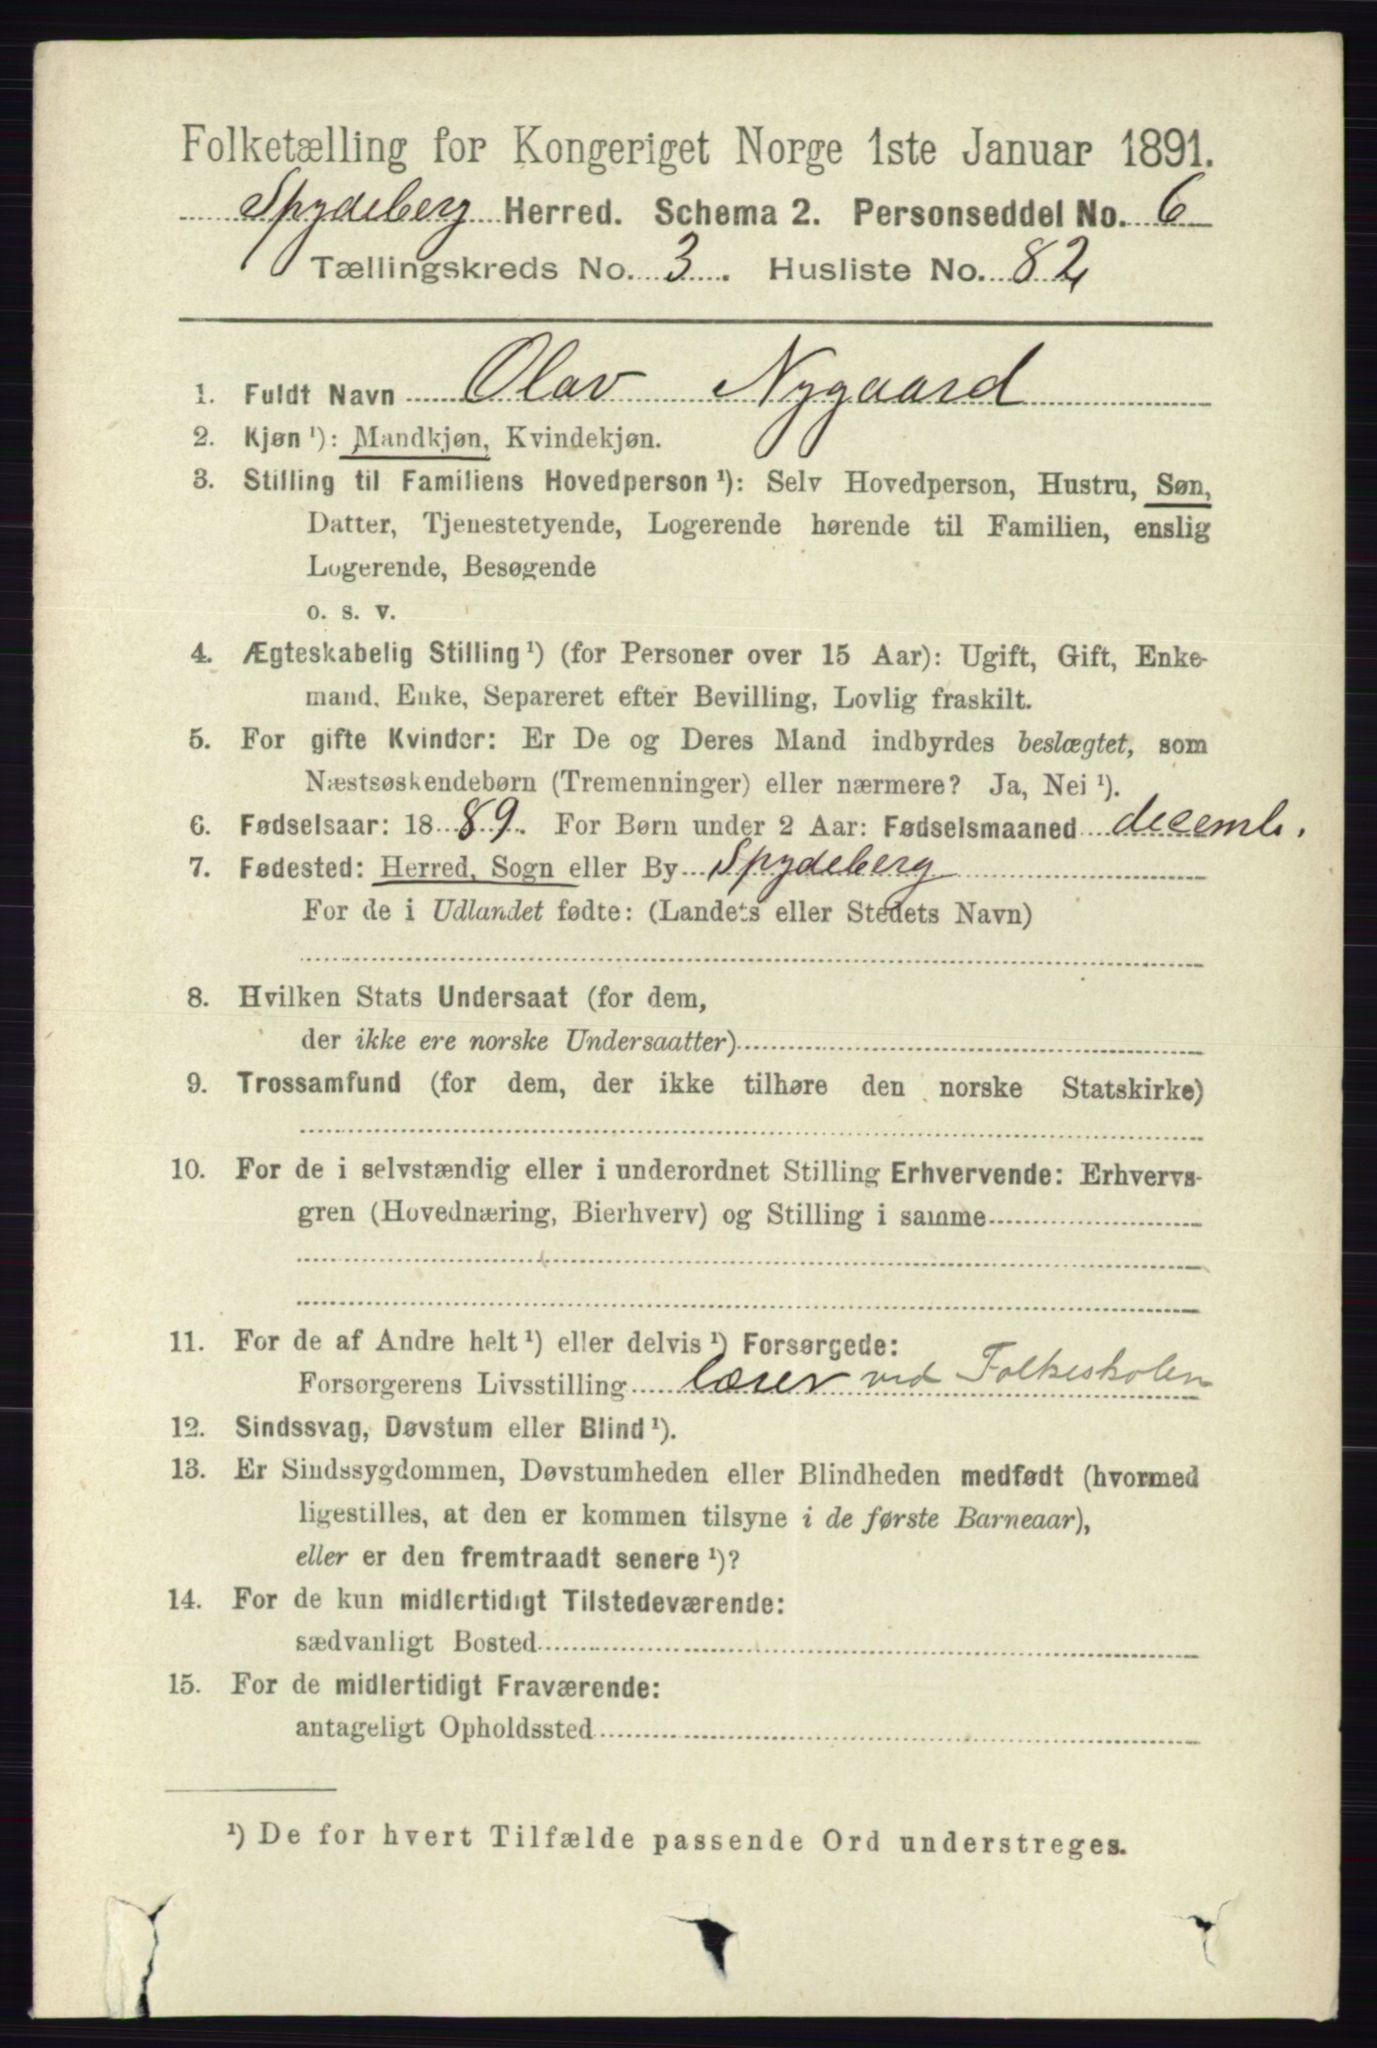 Folketælling for Kongeriget Norge 1ste Januar 1891.
Spydeberg Herred. Schema 2. Personseddel No. 6
Tællingskreds No. 3. Husliste No. 82
1. Fuldt Navn Olav Nygaard
2. Kjøn ¹): Mandkjøn, Kvindekjøn.
3. Stilling til Familiens Hovedperson ¹): Selv Hovedperson, Hustru, Søn,
Datter, Tjenestetyende, Logerende hørende til Familien, enslig
Logerende, Besøgende
o. s. v.
4. Ægteskabelig Stilling ¹) (for Personer over 15 Aar): Ugift, Gift, Enke-
mand, Enke, Separeret efter Bevilling, Lovlig fraskilt.
5. For gifte Kvinder: Er De og Deres Mand indbyrdes beslægtet, som
Næstsøskendebørn (Tremenninger) eller nærmere? Ja, Nei ¹).
6. Fødselsaar: 1889. For Børn under 2 Aar: Fødselsmaaned decemb.
7. Fødested: Herred, Sogn eller By Spydeberg
For de i Udlandet fødte: (Landets eller Stedets Navn)
8. Hvilken Stats Undersaat (for dem,
der ikke ere norske Undersaatter)
9. Trossamfund (for dem, der ikke tilhøre den norske Statskirke)
10. For de i selvstændig eller i underordnet Stilling Erhvervende: Erhvervs-
gren (Hovednæring, Bierhverv) og Stilling i samme
11. For de af Andre helt ¹) eller delvis ¹) Forsørgede:
Forsørgerens Livsstilling lærer ved Folkeskolen
12. Sindssvag, Døvstum eller Blind ¹).
13. Er Sindssygdommen, Døvstumheden eller Blindheden medfødt (hvormed
ligestilles, at den er kommen tilsyne i de første Barneaar),
eller er den fremtraadt senere ¹)?
14. For de kun midlertidigt Tilstedeværende:
sædvanligt Bosted
15. For de midlertidigt Fraværende:
antageligt Opholdssted
¹) De for hvert Tilfælde passende Ord understreges.